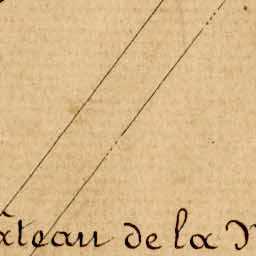 âteau de la